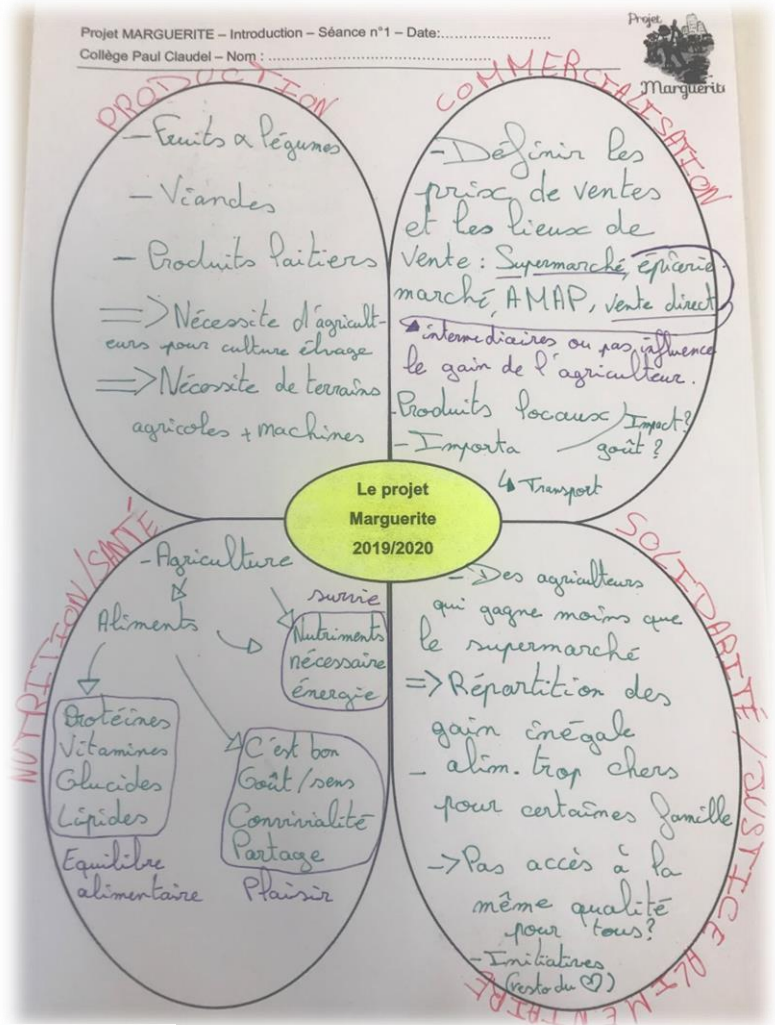 Projet MARGUERITE – Introduction – Séance n°1 – Date:........................
Collège Paul Claudel – Nom : ......................................................
Projet
Marguerite
PRODUCTION
- Fruits & légumes
- Viandes
- Produits laitiers
=> Nécessite d'agricult-
eurs pour culture élvage
=> Nécessite de terrains
agricoles + machines
COMMERCIALISATION
- Définir les
prix de ventes
et les lieux de
vente : Supermarché, épicerie
marché, AMAP, vente direct
intermediaires ou pas, influence
le gain de l'agriculteur.
- Produits locaux
- Importa
Impact?
goût ?
↳ Transport
Le projet
Marguerite
2019/2020
NUTRITION/SANTÉ
- Agriculture
Aliments
survie
Nutriments
nécessaire
énergie
Protéines
Vitamines
Glucides
Lipides
Equilibre
alimentaire
C'est bon
Goût/sens
Convivialité
Partage
Plaisir
SOLIDARITÉ / JUSTICE ALIMENTAIRE
- Des agriculteurs
qui gagne moins que
le supermarché
=> Répartition des
gain inégale
- alim. trop chers
pour certaines famille
-> Pas accès à la
même qualité
pour tous?
- Initiatives
(resto du ♡)